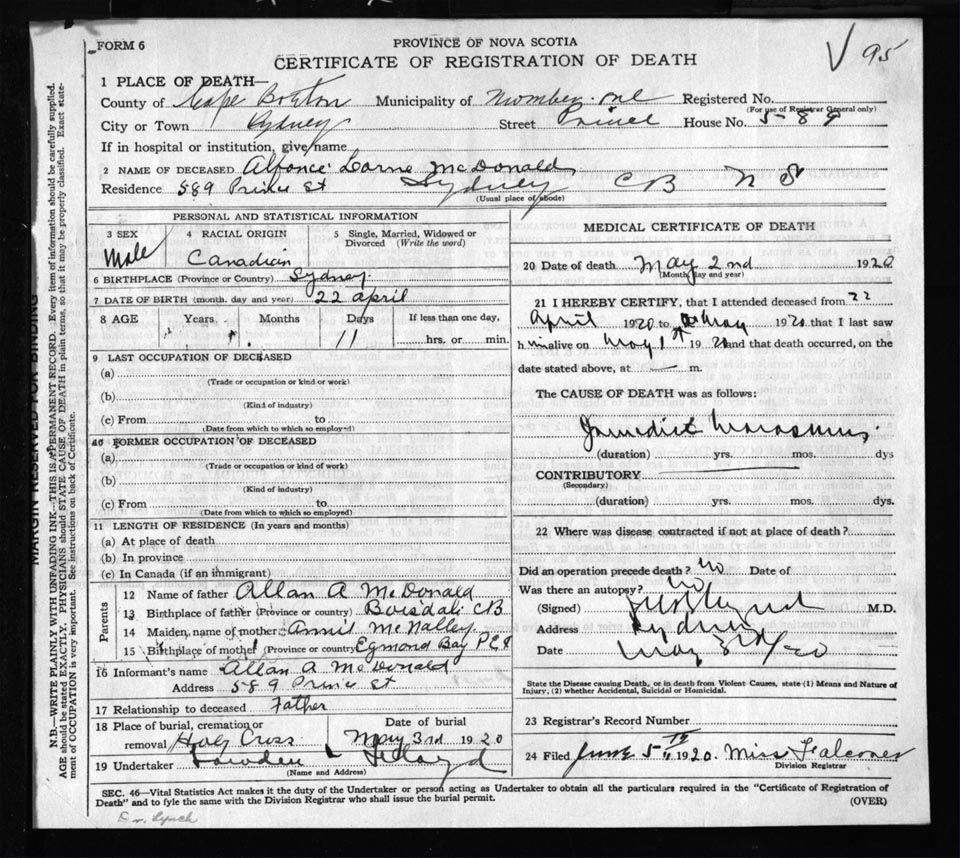 FORM 6
PROVINCE OF NOVA SCOTIA
CERTIFICATE OF REGISTRATION OF DEATH
V 95
1 PLACE OF DEATH—
County of Cape Breton Municipality of Number one Registered No.
(For use of Registrar General only)
City or Town Sydney Street Prince House No. 589
If in hospital or institution, give name
2 NAME OF DECEASED Alfonce Lorne McDonald
Residence 589 Prince St Sydney CB N S
(Usual place of abode)
PERSONAL AND STATISTICAL INFORMATION
3 SEX Male
4 RACIAL ORIGIN Canadian
5 Single, Married, Widowed or Divorced (Write the word)
6 BIRTHPLACE (Province or Country) Sydney
7 DATE OF BIRTH (month, day and year) 22 April
8 AGE Years Months Days 11 If less than one day, hrs. or min.
9 LAST OCCUPATION OF DECEASED
(a)
(Trade or occupation or kind or work)
(b)
(Kind of industry)
(c) From to
(Date from which to which so employed)
10 FORMER OCCUPATION OF DECEASED
(a)
(Trade or occupation or kind of work)
(b)
(Kind of industry)
(c) From to
(Date from which to which so employed)
11 LENGTH OF RESIDENCE (In years and months)
(a) At place of death
(b) In province
(c) In Canada (if an immigrant)
Parents
12 Name of father Allan A McDonald
13 Birthplace of father (Province or country) Boisdali CB
14 Maiden name of mother Annie McNalley
15 Birthplace of mother (Province or country) Egmond Bay P E I
16 Informant's name Allan A McDonald
Address 589 Prince St
17 Relationship to deceased Father
18 Place of burial, cremation or removal Holy Cross
Date of burial May 3rd 1920
19 Undertaker
(Name and Address)
MEDICAL CERTIFICATE OF DEATH
20 Date of death May 2nd 1920
(Month, day and year)
21 I HEREBY CERTIFY, that I attended deceased from 22
April 1920 to May 1920 that I last saw
him alive on May 1st 1920 and that death occurred, on the
date stated above, at — m.
The CAUSE OF DEATH was as follows:
Marasmus
(duration) yrs. mos. dys
CONTRIBUTORY
(Secondary)
(duration) yrs. mos. dys.
22 Where was disease contracted if not at place of death?
Did an operation precede death? no Date of
Was there an autopsy? no
(Signed) M.D.
Address Sydney
Date May 3rd/20
State the Disease causing Death, or in death from Violent Causes, state (1) Means and Nature of
Injury, (2) whether Accidental, Suicidal or Homicidal.
23 Registrar's Record Number
24 Filed June 5th 1920. Miss Falconer
Division Registrar
SEC. 46—Vital Statistics Act makes it the duty of the Undertaker or person acting as Undertaker to obtain all the particulars required in the "Certificate of Registration of
Death" and to fyle the same with the Division Registrar who shall issue the burial permit.
(OVER)
Dr. Lynch
MARGIN RESERVED FOR BINDING
N.B.—WRITE PLAINLY WITH UNFADING INK—THIS IS A PERMANENT RECORD. Every item of information should be carefully supplied.
AGE should be stated EXACTLY. PHYSICIANS should STATE CAUSE OF DEATH in plain terms, so that it may be properly classified. Exact state-
ment of OCCUPATION is very important. See instructions on back of Certificate.